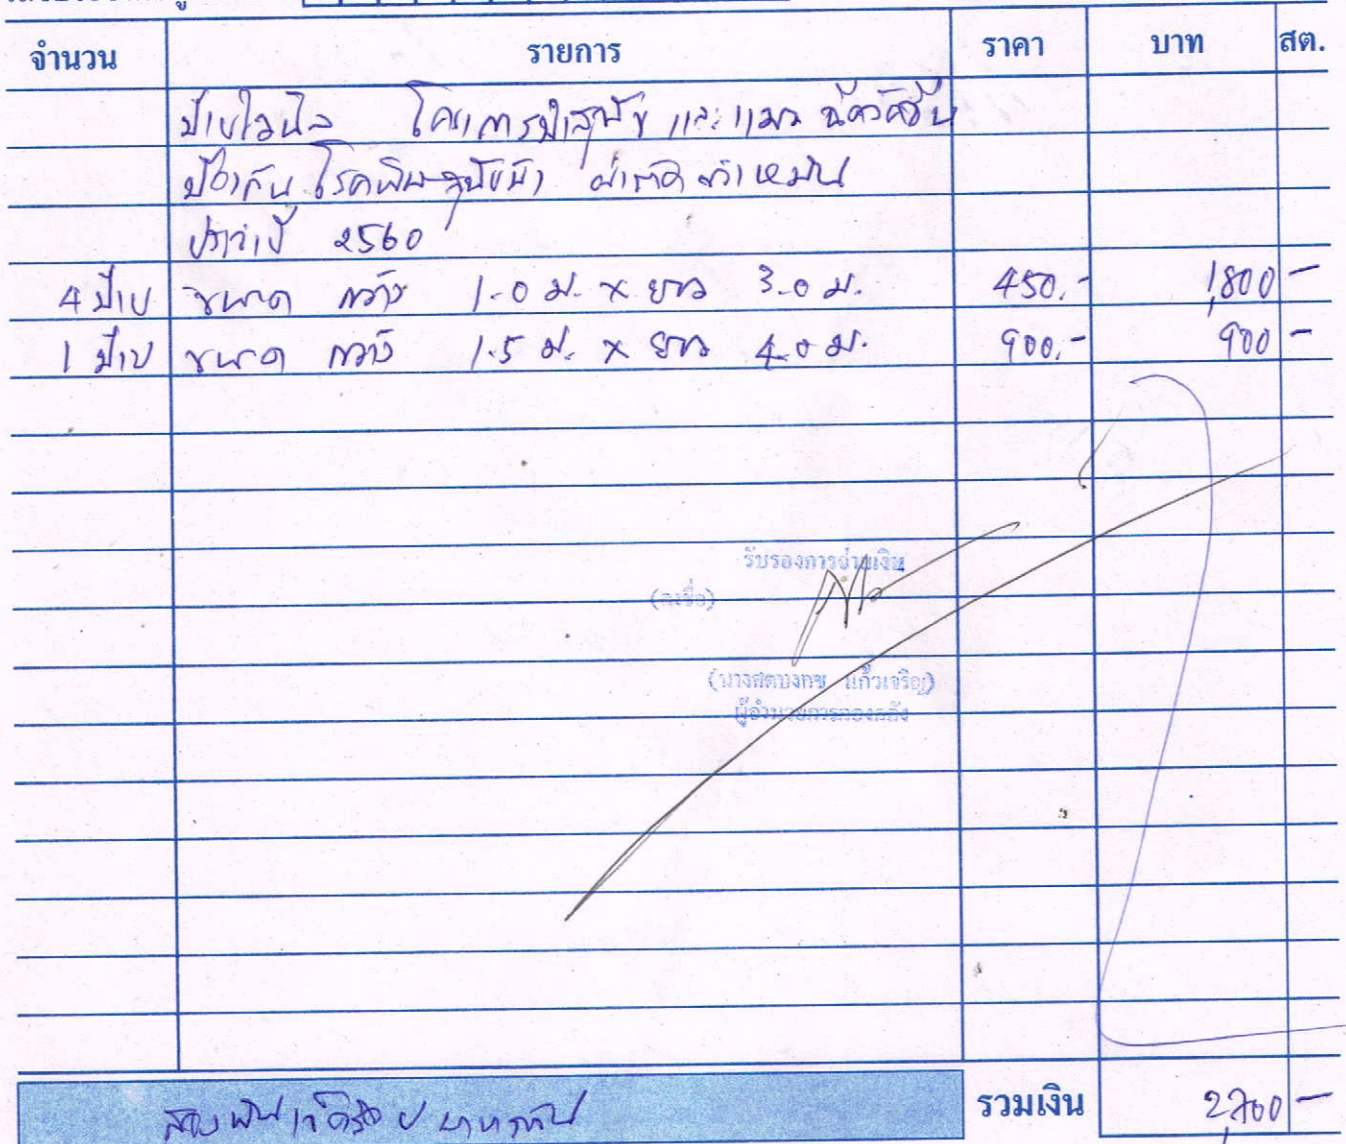 จำนวน รายการ ราคา บาท สต.
ป้ายไวนิล โครงการนำสุนัข และแมว ฉีดวัคซีน
ป้องกันโรคพิษสุนัขบ้า ผ่าตัดทำหมัน
ประจำปี 2560
4 ป้าย ขนาด กว้าง 1.0 ม. x ยาว 3.0 ม. 450.- 1,800 -
1 ป้าย ขนาด กว้าง 1.5 ม. x ยาว 4.0 ม. 900.- 900 -
รับรองการจ่ายเงิน
(ลงชื่อ)
แก้วเจริญ)
ผู้อำนวยการกองคลัง
สองพันเจ็ดร้อยบาทถ้วน รวมเงิน 2,700 -